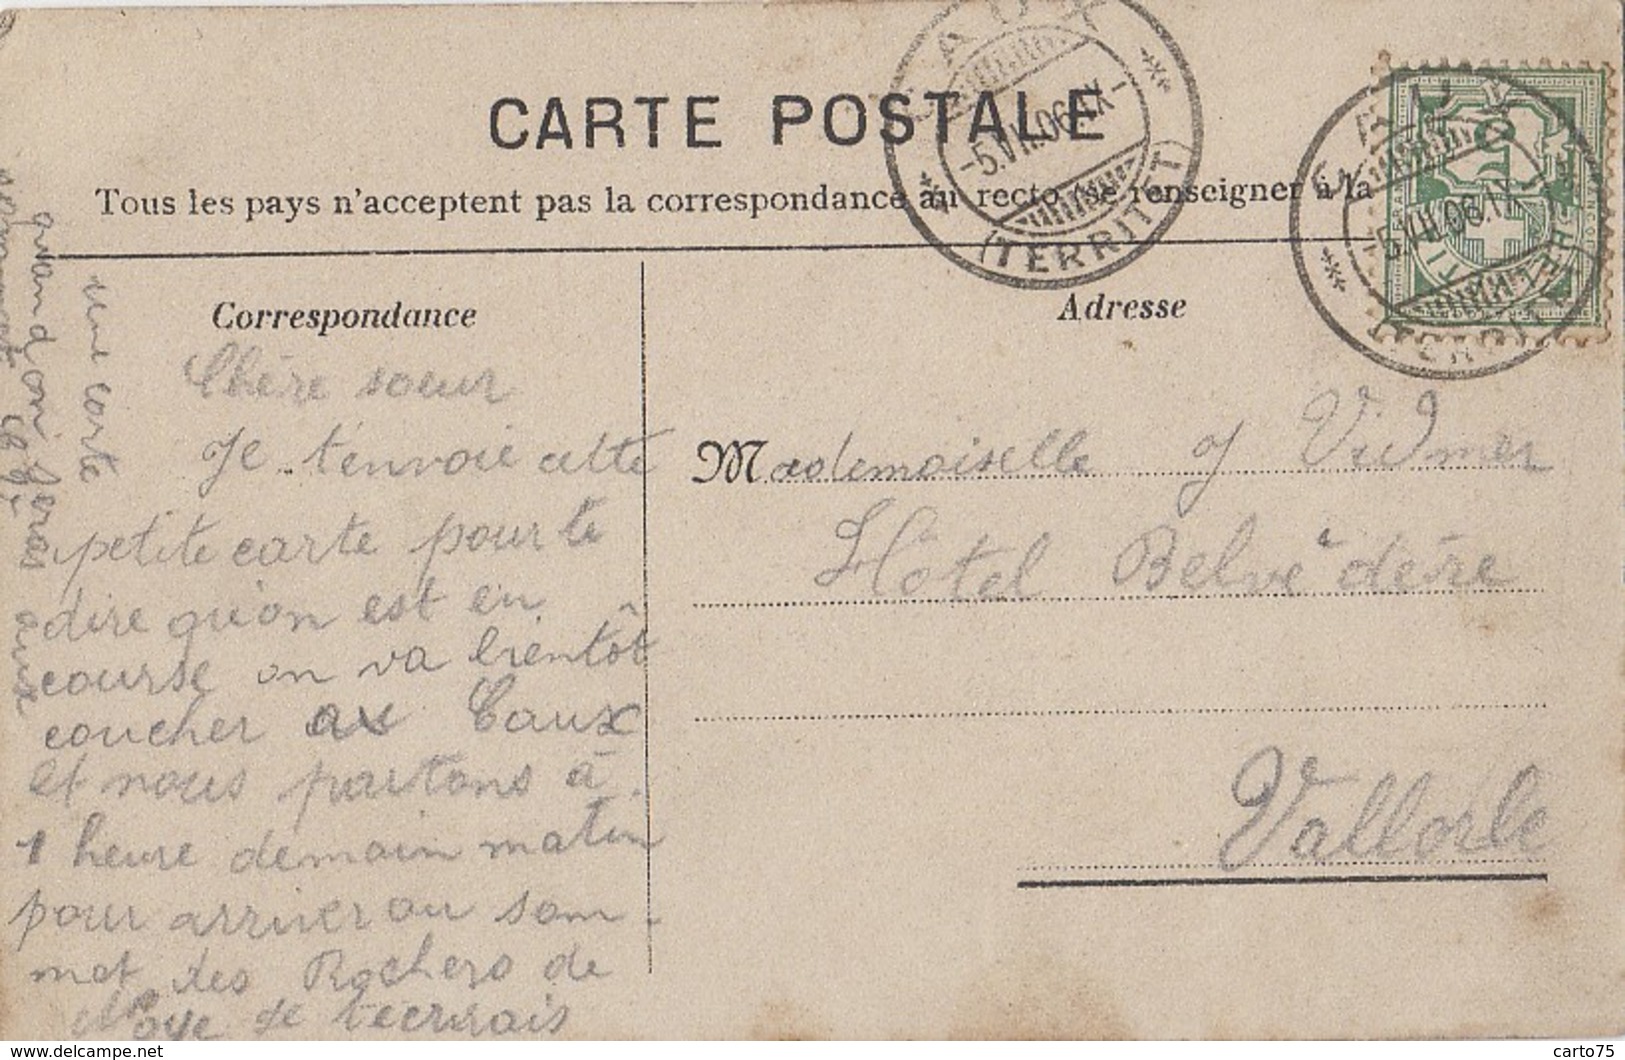 CARTE POSTALE
Tous les pays n'acceptent pas la correspondance au recto (se renseigner à la
CAUX
-5.VII.06.IX-
(TERRITET)
CAUX
-5.VII.06.IX-
(TERRITET)
Correspondance
Adresse
Chère soeur
Je t'envoie cette
petite carte pour te
dire qu'on est en
course on va bientôt
coucher ax Caux
et nous partons à
1 heure demain matin
pour arriver au som-
met des Rochers de
Naye je t'écrirais
une carte
quand on sera
Mademoiselle J Vidmer
Hôtel Belvédère
Vallorbe
carto75